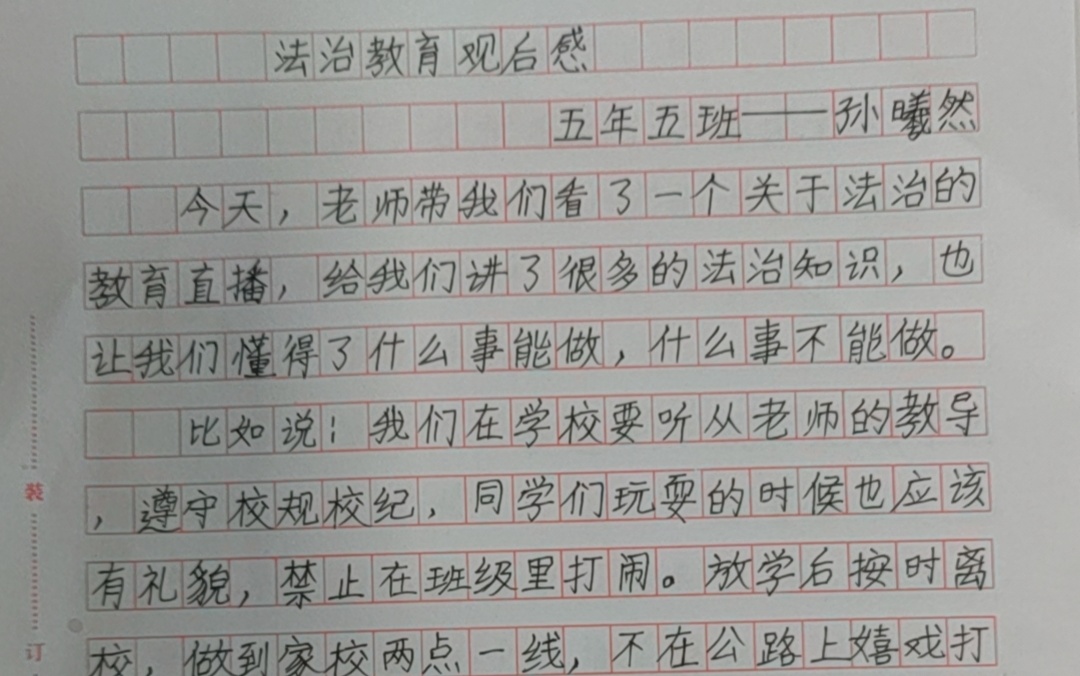 法治教育观后感
五年五班——孙曦然
今天，老师带我们看了一个关于法治的
教育直播，给我们讲了很多的法治知识，也
让我们懂得了什么事能做，什么事不能做。
比如说：我们在学校要听从老师的教导
，遵守校规校纪，同学们玩耍的时候也应该
有礼貌，禁止在班级里打闹。放学后按时离
校，做到家校两点一线，不在公路上嬉戏打
装
订